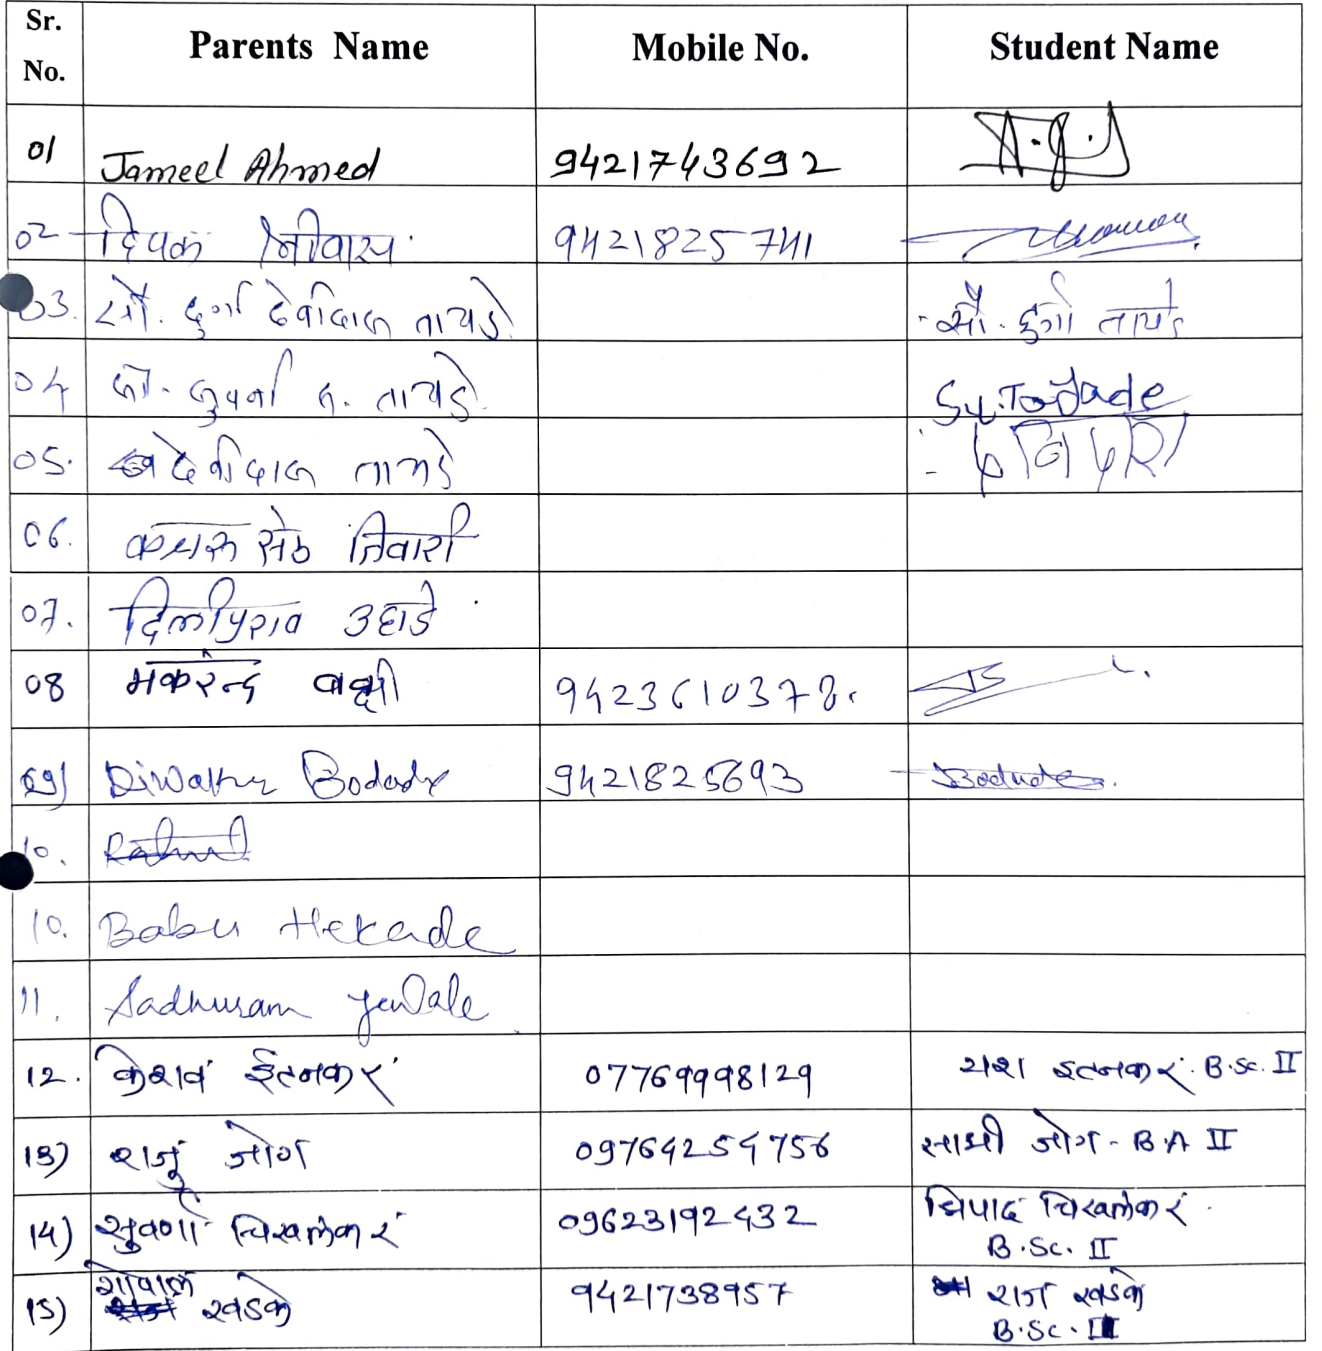 Sr. No. Parents Name Mobile No. Student Name
01 Jameel Ahmed 9421743692
02 दिपक श्रीवास 9421825741
03. सौ. दुर्गा देवीदास तायडे सौ. दुर्गा तायडे
04 सौ. सुवर्णा तायडे
05. देवीदास तायडे
06. सेठ तिवारी
07. दिलीपराव उहाडे
08 मकरंन्द बक्षी 9423610378.
09) Bodade 9421825693
10.
10. Babu Hekade
11. Sadhuram
12. केशव ईटनकर 07769998129 यश इटनकर. B.Sc. II
13) राजू जोग 09764254756 साक्षी जोग - B.A II
14) सुवर्णा चिखलकर 09623192432 श्रिपाद चिखलेकर
B.Sc. II
15) गोपाल खडके 9421738957 राज खडके
B.Sc.